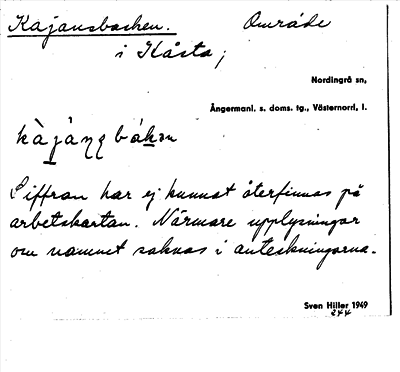 Kajansbacken. Område
i Kåsta;
Nordingrå sn,
Ångermanl. s. doms. tg., Västernorrl. l.
Siffran har ej kunnat återfinnas på
arbetskartan. Närmare upplysningar
om namnet saknas i anteckningarna.
Sven Hiller 1949